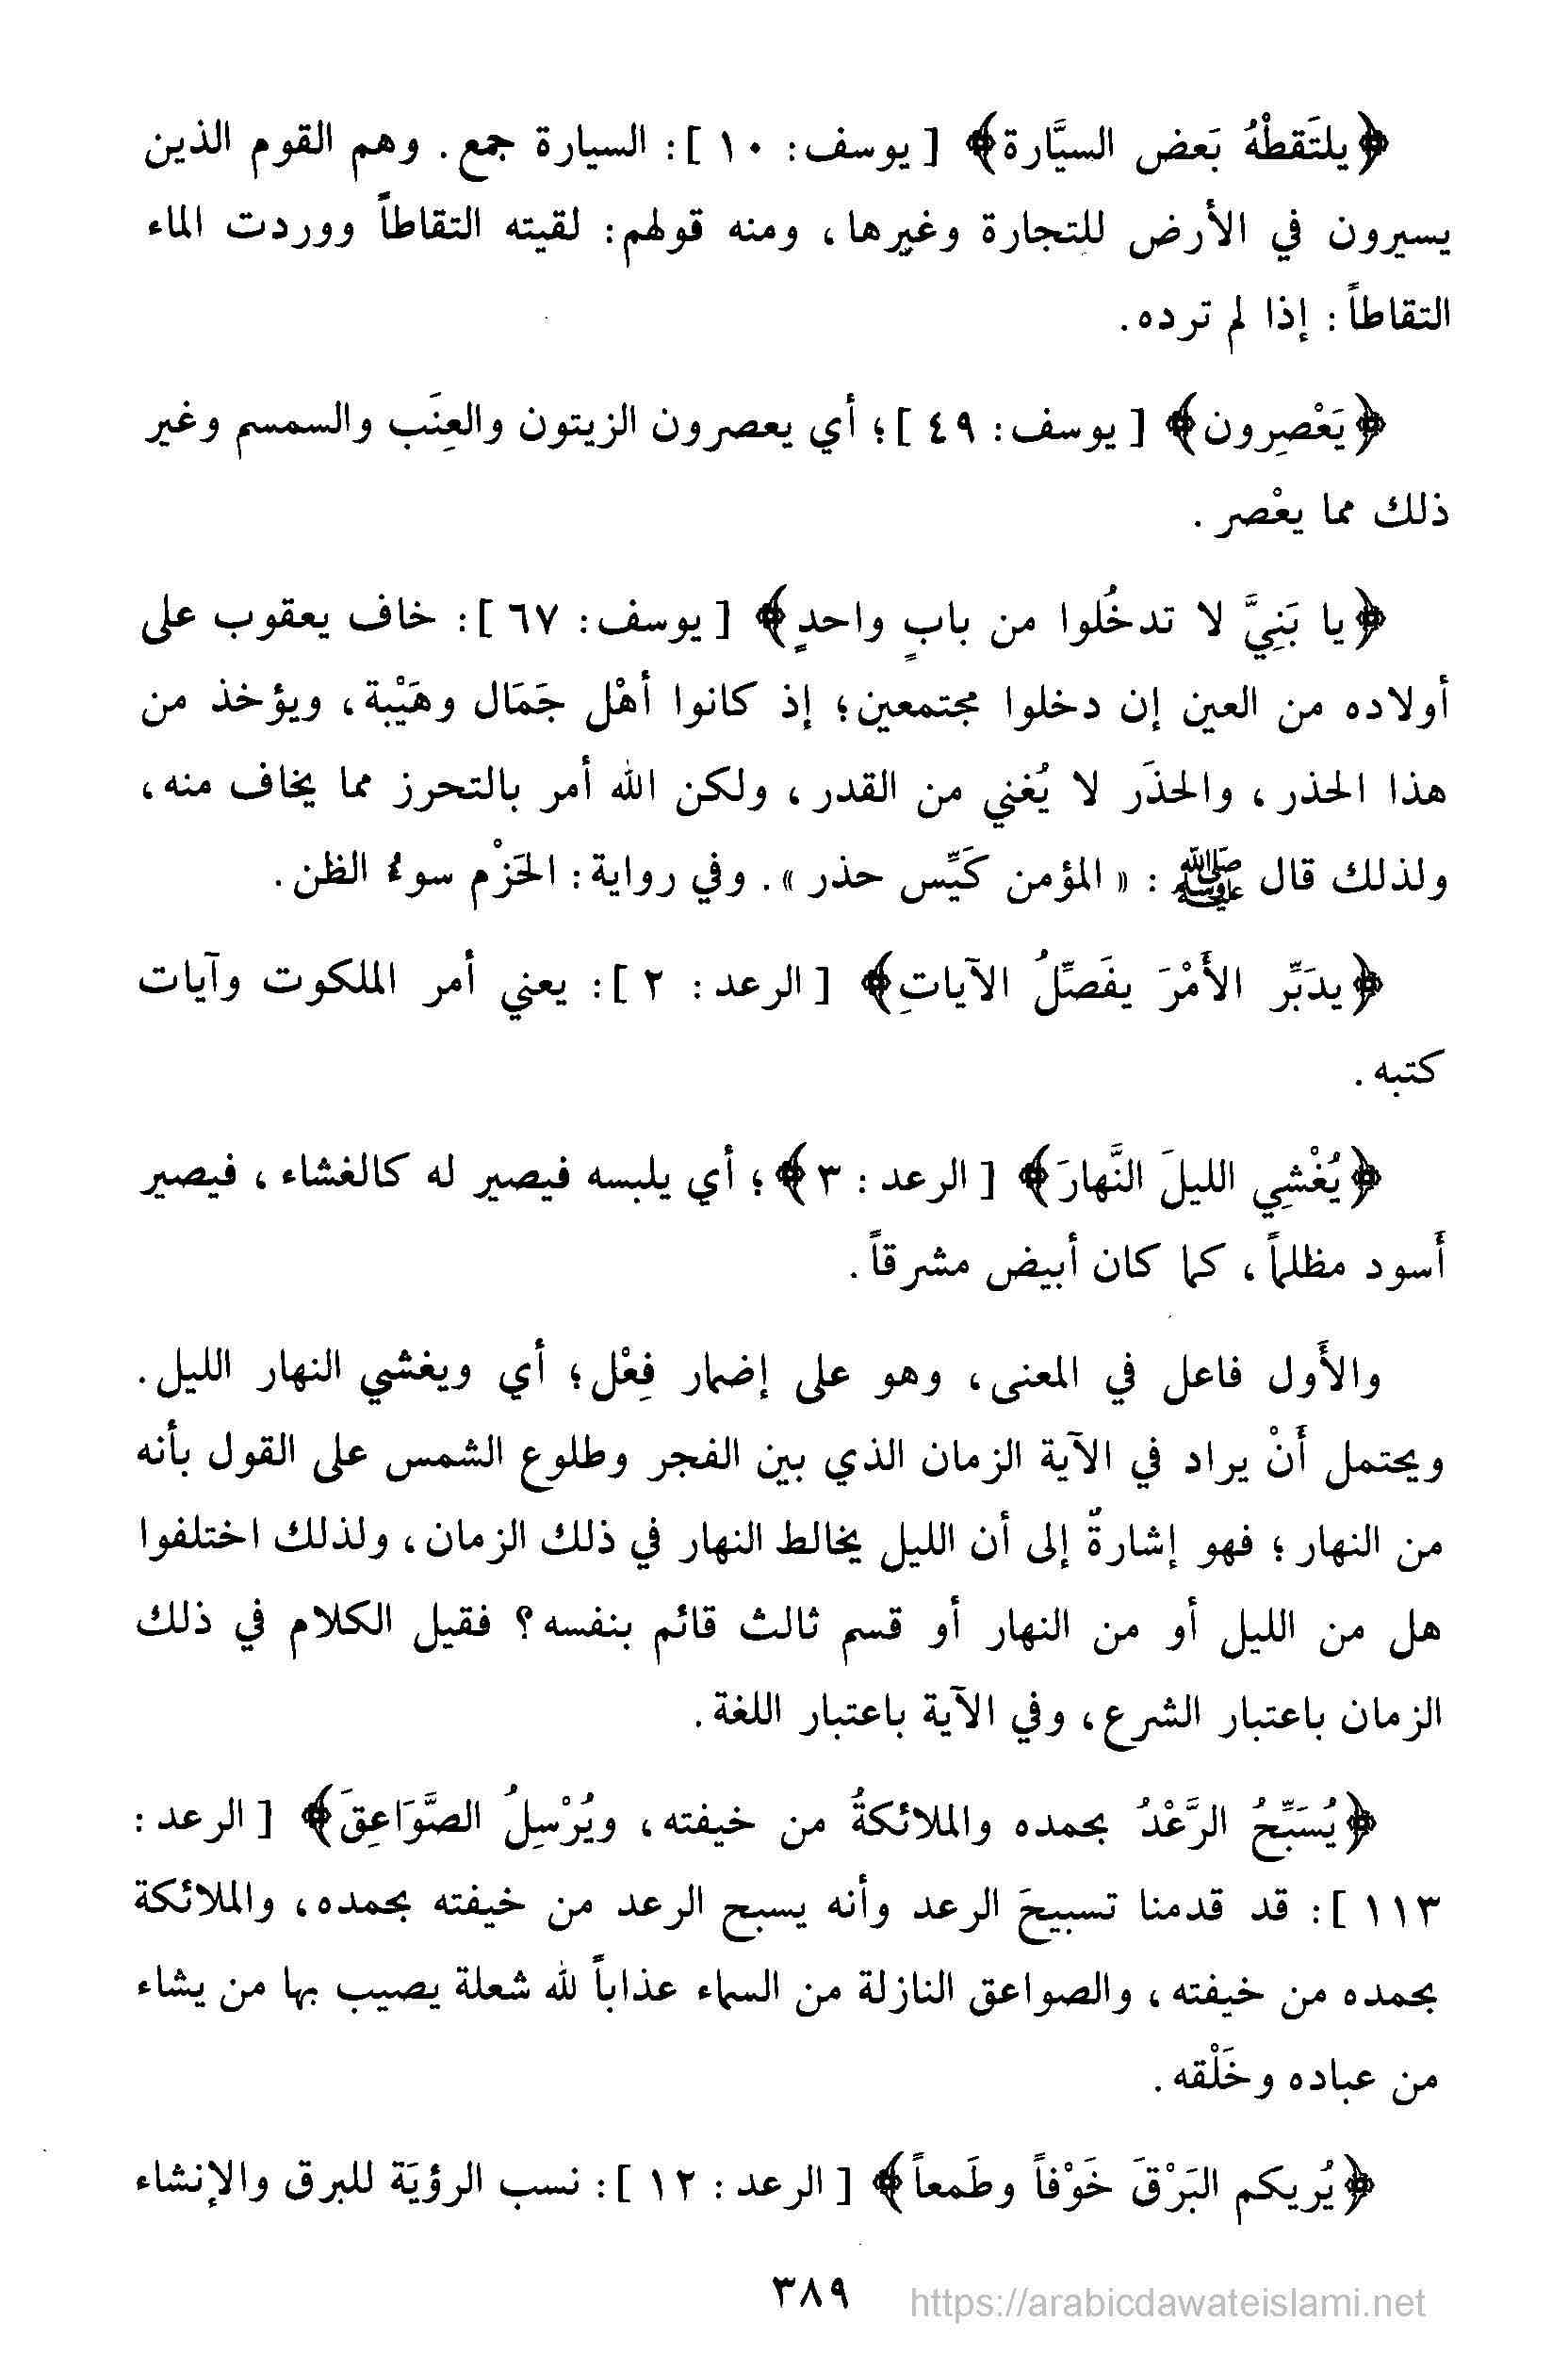 ﴿يلتَقطْهُ بَعض السيَّارة﴾ [ يوسف: ١٠ ]: السيارة جمع. وهم القوم الذين
يسيرون في الأرض للتجارة وغيرها، ومنه قولهم: لقيته التقاطاً ووردت الماء
التقاطاً: إذا لم ترده.
﴿يَعْصِرون﴾ [ يوسف: ٤٩ ]؛ أي يعصرون الزيتون والعِنَب والسمسم وغير
ذلك مما يعْصر.
﴿يا بَنِيَّ لا تدخُلوا من بابٍ واحدٍ﴾ [ يوسف: ٦٧ ]: خاف يعقوب على
أولاده من العين إن دخلوا مجتمعين؛ إذ كانوا أهْل جَمَال وهَيْبة، ويؤخذ من
هذا الحذر، والحذَر لا يُغني من القدر، ولكن الله أمر بالتحرز مما يخاف منه،
ولذلك قال ﷺ : « المؤمن كَيِّس حذر ». وفي رواية: الحَزْم سوءُ الظن.
﴿يدَبِّر الأَمْرَ يفَصِّلُ الآياتِ﴾ [ الرعد: ٢ ]: يعني أمر الملكوت وآيات
كتبه.
﴿يُغْشِي الليلَ النَّهارَ﴾ [ الرعد: ٣﴾؛ أي يلبسه فيصير له كالغشاء، فيصير
أَسود مظلماً، كما كان أبيض مشرقاً.
والأَول فاعل في المعنى، وهو على إضمار فِعْل؛ أي ويغشي النهار الليل.
ويحتمل أَنْ يراد في الآية الزمان الذي بين الفجر وطلوع الشمس على القول بأنه
من النهار؛ فهو إشارةٌ إلى أن الليل يخالط النهار في ذلك الزمان، ولذلك اختلفوا
هل من الليل أو من النهار أو قسم ثالث قائم بنفسه؟ فقيل الكلام في ذلك
الزمان باعتبار الشرع، وفي الآية باعتبار اللغة.
﴿يُسَبِّحُ الرَّعْدُ بحمده والملائكةُ من خيفته، ويُرْسِلُ الصَّوَاعِقَ﴾ [ الرعد:
١١٣ ]: قد قدمنا تسبيحَ الرعد وأنه يسبح الرعد من خيفته بحمده، والملائكة
بحمده من خيفته، والصواعق النازلة من السماء عذاباً لله شعلة يصيب بها من يشاء
من عباده وخَلْقه.
﴿يُريكم البَرْقَ خَوْفاً وطَمعاً﴾ [ الرعد: ١٢ ]: نسب الرؤيَة للبرق والإنشاء
٣٨٩
https://arabicdawateislami.net